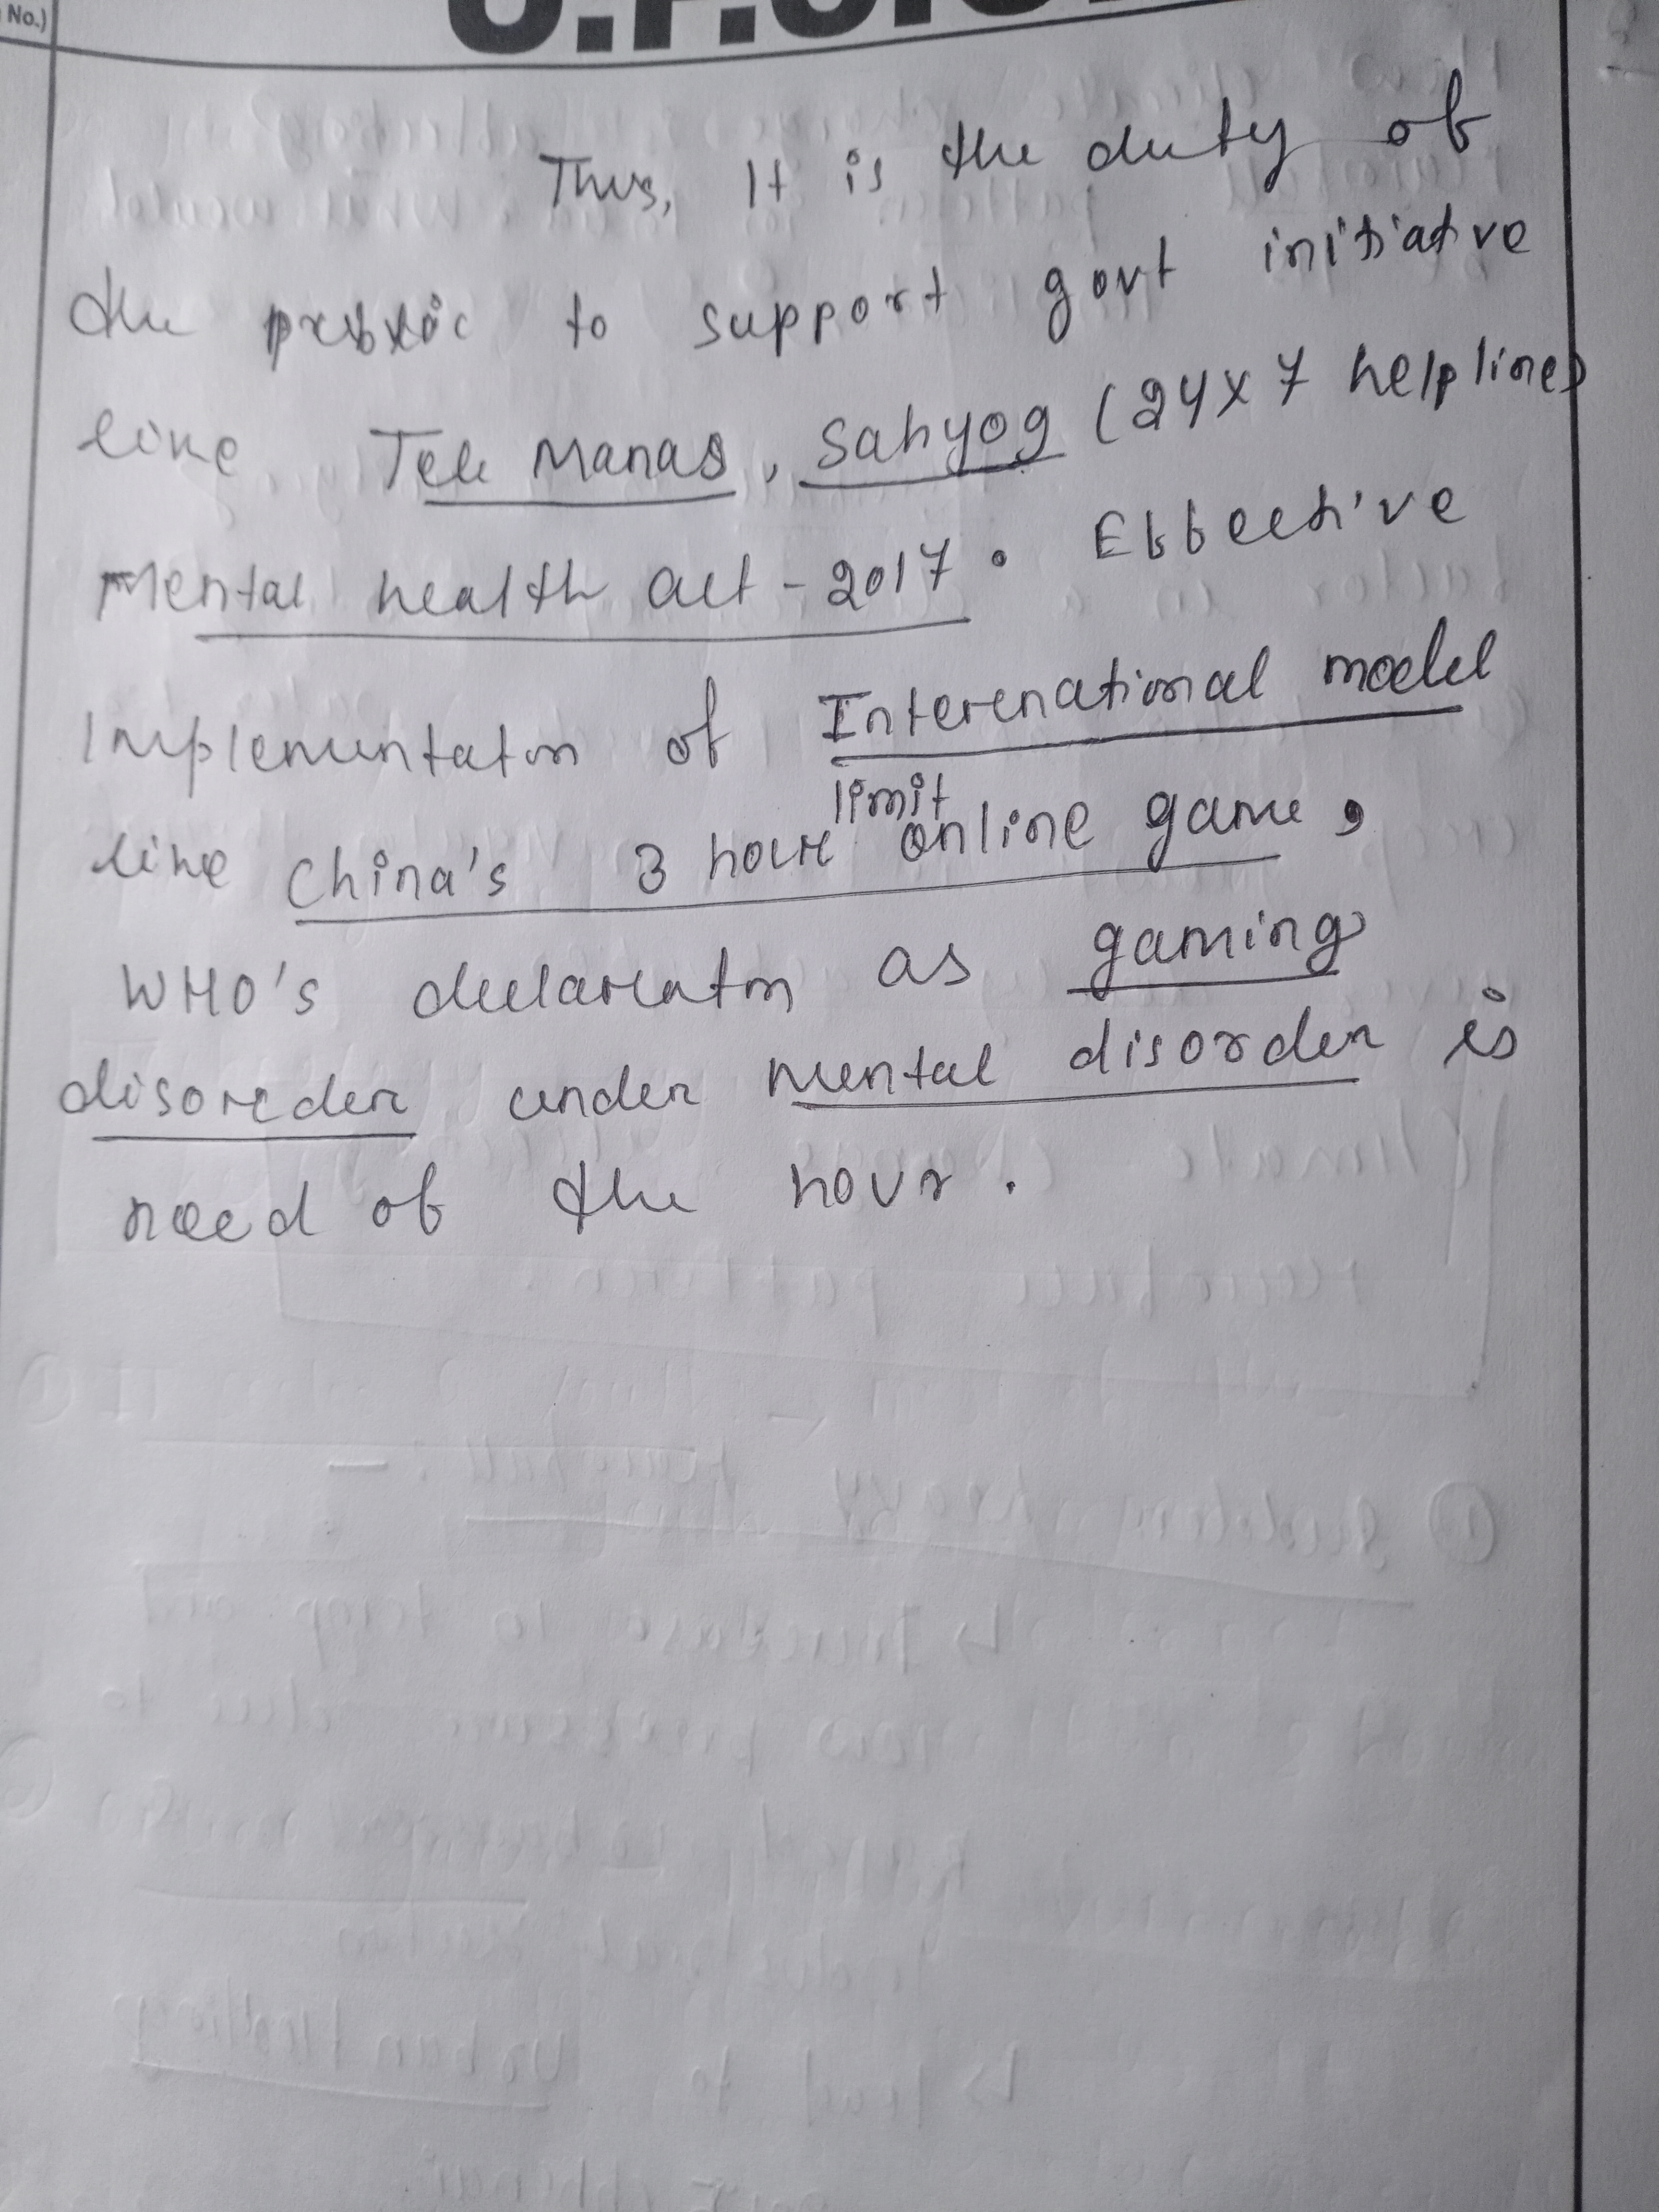 No.)
Thus, It is the duty of
the public to support govt initiative
like Tele Manas, Sahyog (24x7 helplines
Mental health act - 2017. Effective
Implementation of International model
limit
like China's 3 hour online game,
WHO's declaration as gaming
disorder under mental disorder is
need of the hour.